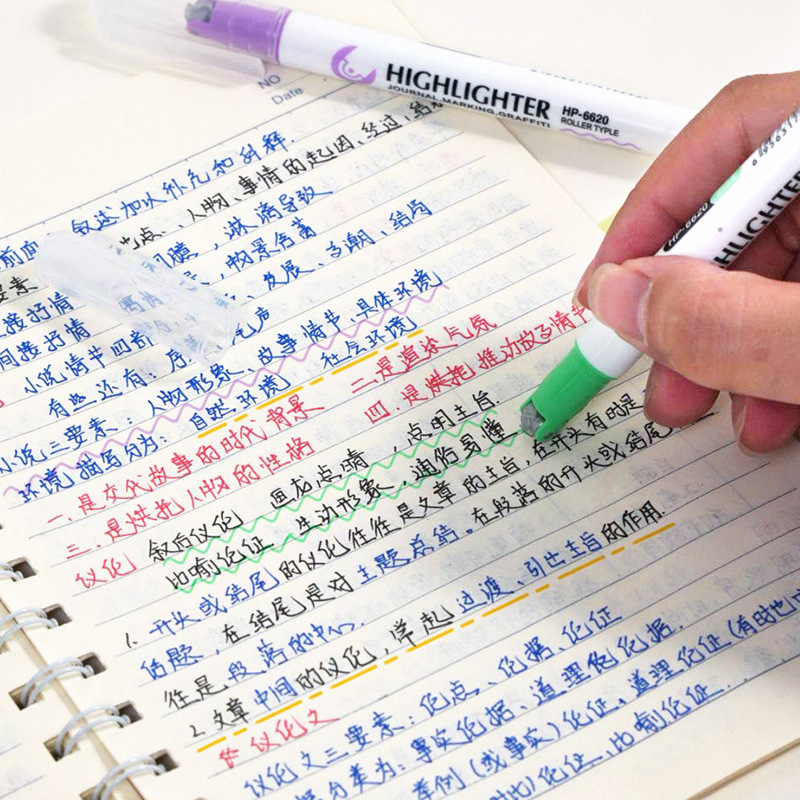 HIGHLIGHTER
JOURNAL.MARKING.GRAFFITI
HP-6620
ROLLER TYPLE
HP-6620
HIGHLIGHTER
NO
Date
叙述加以补充和解释.
人物、事情的起因、经过、结
，淋漓导致
，物景合着
发展、高潮、结局
接抒情
间接抒情
小说情节四
有些还有：序 尾声
小说三要素：人物形象、故事情节、具体环境
环境描写分为：自然环境 社会环境
一.是交代故事的时代背景 二.是渲染气氛
三.是烘托人物的性格 四.是烘托推动故事情节
议论 叙后议论 画龙点睛，点明主旨.
比喻论证 生动形象，通俗易懂
1.开头或结尾的议论往往是文章的主旨，在开头有时是
话题，在结尾是对主题总结，在段落的开头或结尾
往是段落的中心.
2.文章中间的议论，常起过渡、引出主旨的作用.
议论文
议论文三要素：论点、论据、论证
分类为：事实论据、道理论据.
举例（或事实）论证、道理论证（有时也
对比）论证、比喻论证...